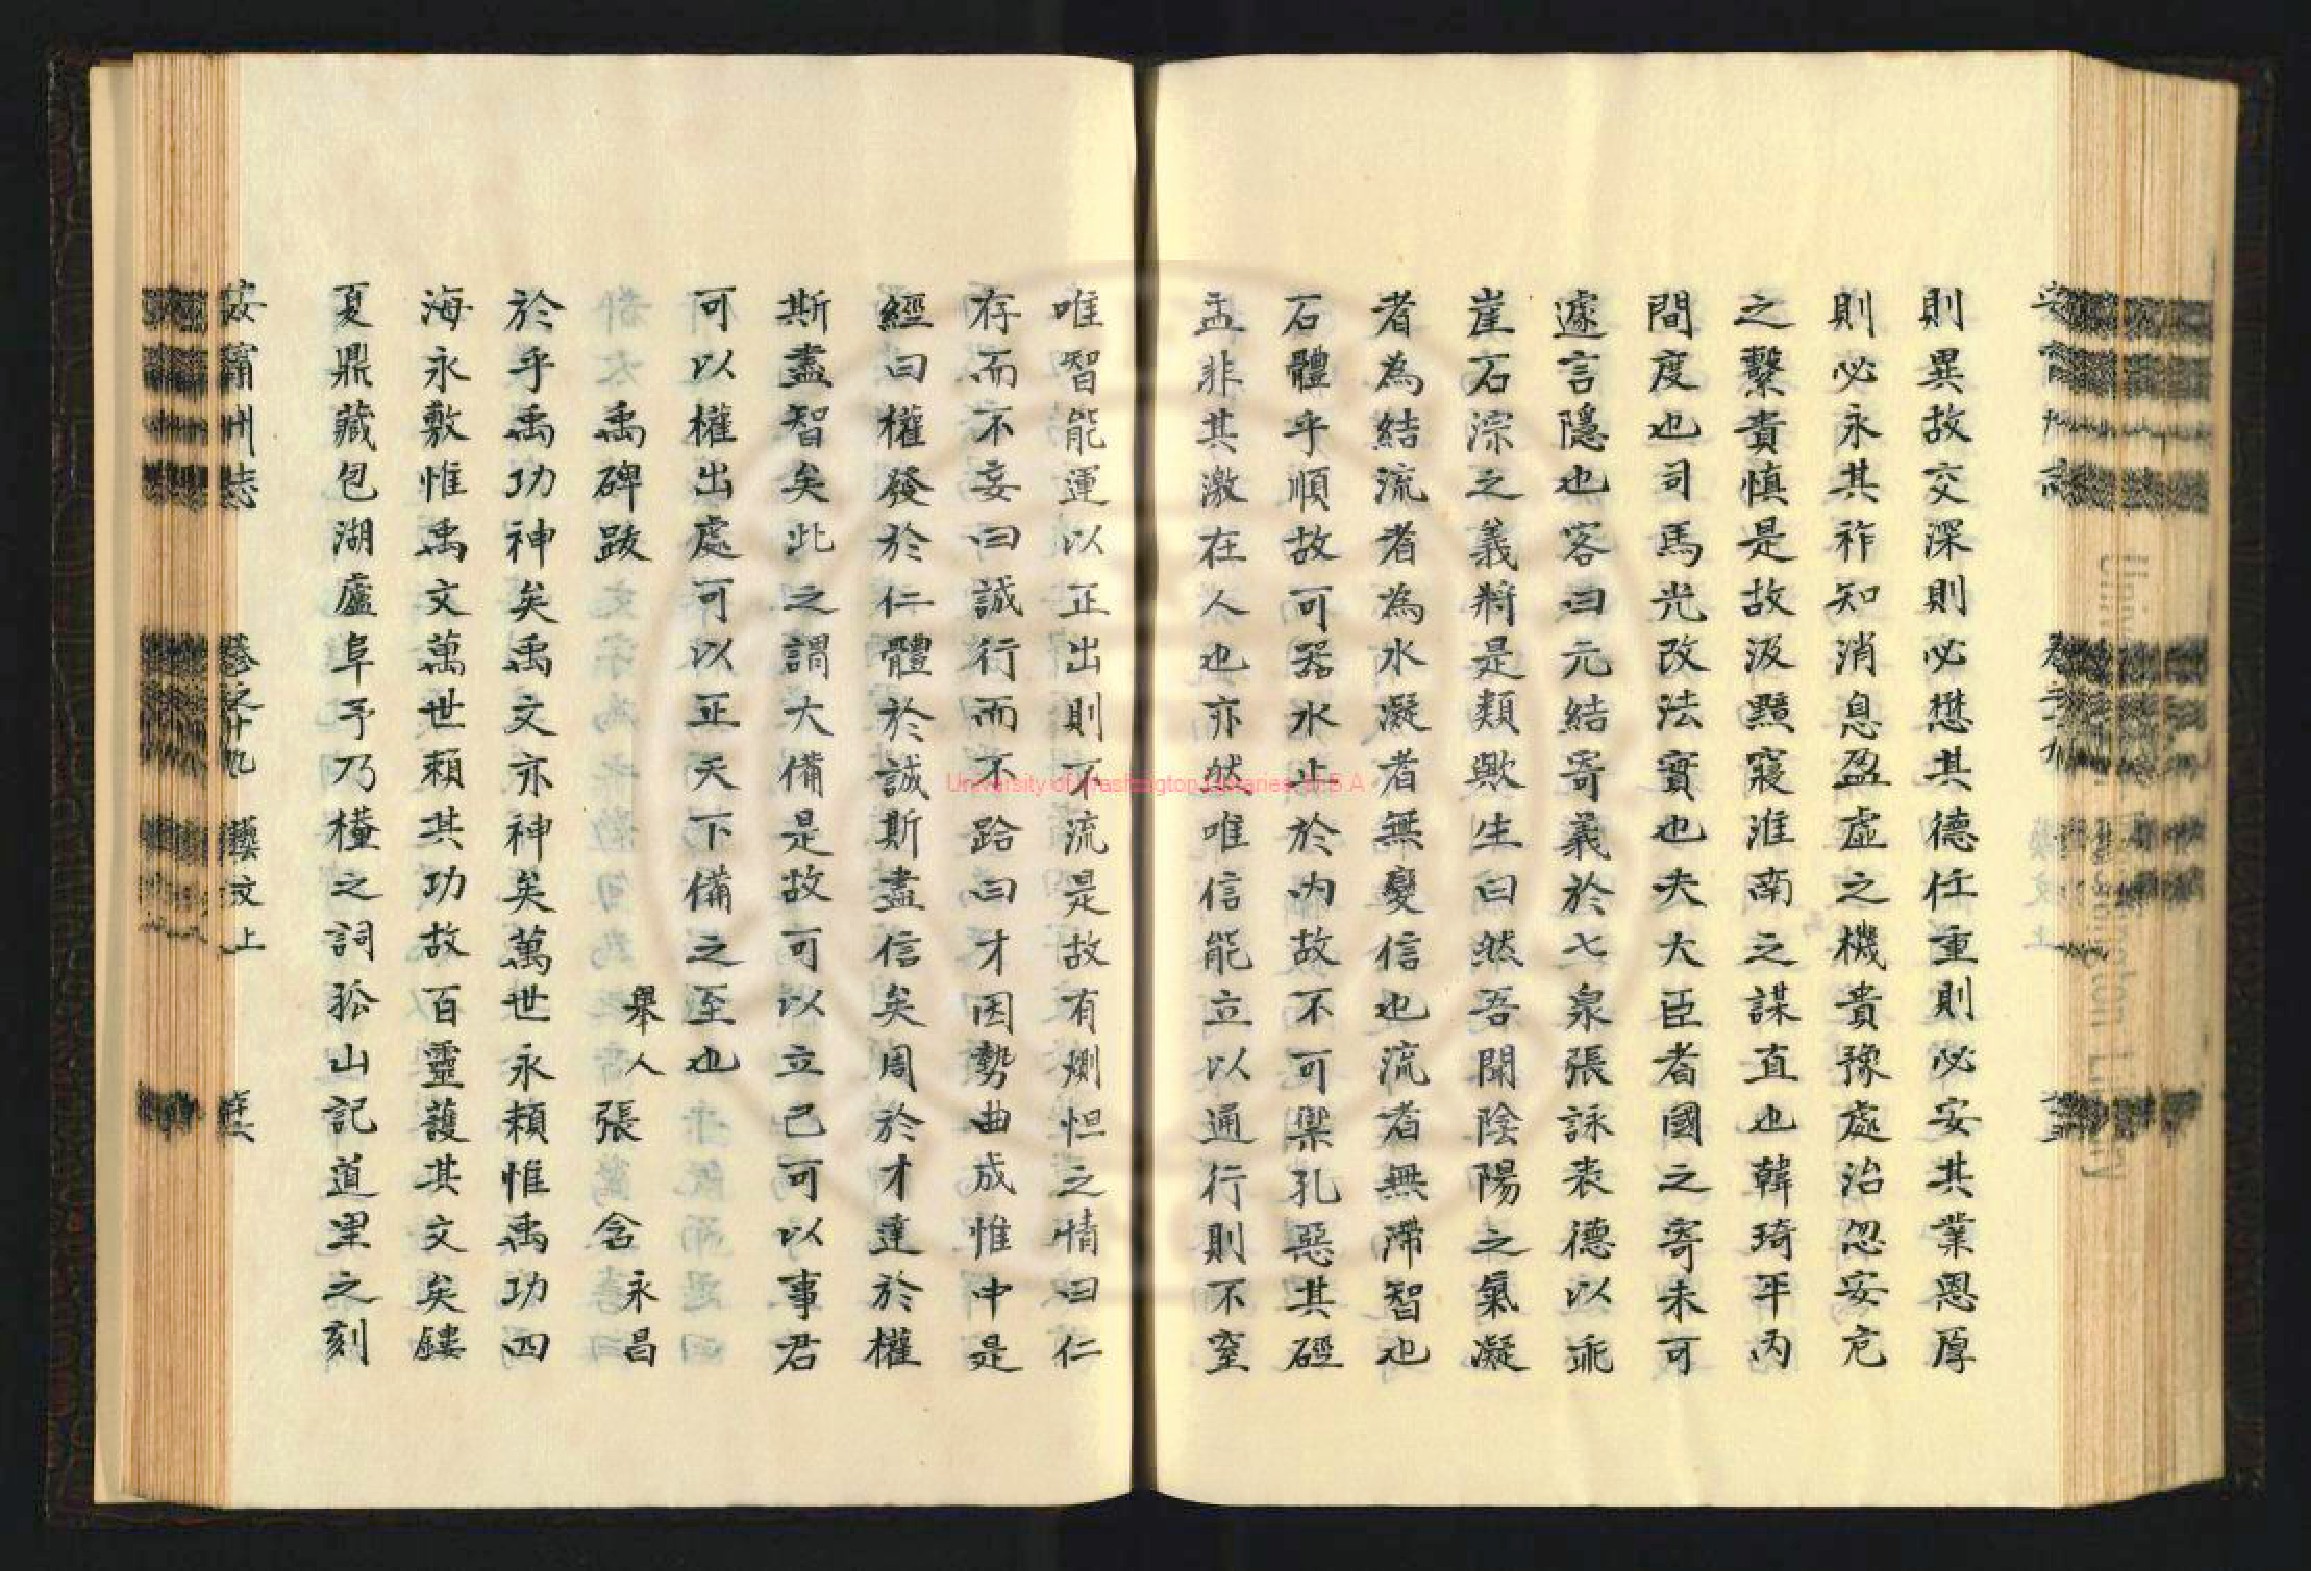 則異故交深則必懋其德任重則必安其業恩厚
則必永其祚知消息盈虛之機貴豫處治忽安危
之繫貴慎是故汲黯寢淮南之謀直也韓琦平丙
間度也司馬光改法實也夫大臣者國之寄未可
遽言隱也客曰元結寄義於七泉張詠表德以乖
崖石淙之義將是類歟生曰然吾聞陰陽之氣凝
者為結流者為水凝者無變信也流者無滯智也
石體乎順故可器水止於內故不可禦孔惡其硜
孟非其激在人也亦然唯信能立以通行則不窒
唯智能運以正出則不流是故有惻怛之情曰仁
存而不妄曰誠行而不跲曰才因勢曲成惟中是
經曰權發於仁體於誠斯盡信矣周於才達於權
斯盡智矣此之謂大備是故可以立己可以事君
可以權出處可以正天下備之至也
禹碑跋 舉人 張含 永昌
於乎禹功神矣禹文亦神矣萬世永賴惟禹功四
海永敷惟禹文萬世賴其功故百靈護其文矣鏤
夏鼎藏包湖廬阜予乃櫝之詞孤山記道里之刻
安甯州志 卷之十九 藝文上
University of Washington Libraries U.S.A